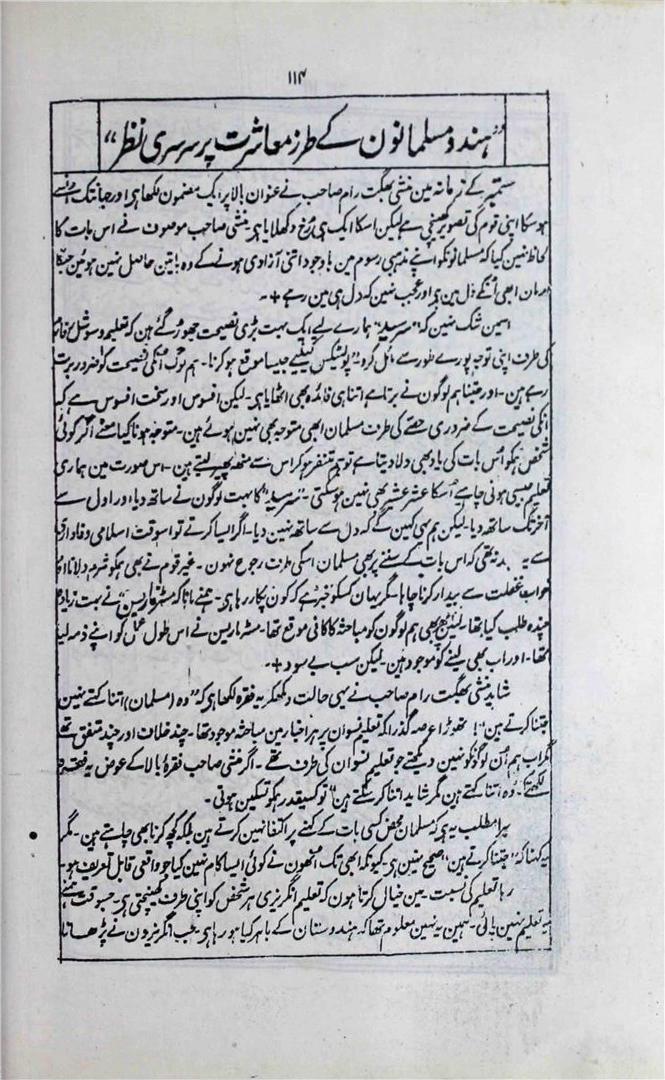 ۱۱۴
”ہندو مسلمانون کے طرز معاشرت پر سرسری نظر“
ستمبر کے زمانہ مین منشی بھگت رام صاحب نے عنوان بالا پر ایک مضمون لکھا ہی اور جہانتک اونسے
ہوسکا اپنی قوم کی تصویر کھینچی ہے لیکن اسکا ایک ہی رخ دکھلایا ہی۔ منشی صاحب موصوف نے اس بات کا
لحاظ نہین کیا کہ مسلمانونکو اپنے مذہبی رسوم مین باوجود اتنی آزادی ہونے کے وہ باتین حاصل نہین ہوئین جنکا
ارمان ابھی اُنکے دل مین ہی اور عجب نہین کہ دل ہی مین رہے +۔
اسمین شک نہین کہ ”سرسید“ ہمارے لیے ایک بہت بڑی نصیحت چھوڑ گئے ہین کہ تعلیم و سوشل رفارم
کی طرف اپنی توجہ پورے طور سے مائل کرو ”پولٹیکس“ کیلیے جیسا موقع ہو کرنا۔ ہم لوگ اُنکی نصیحت کو ضرور برت
رہے ہین۔ اور جتنا ہم لوگون نے برتا ہے اتنا ہی فائدہ بھی اٹھایا ہی۔ لیکن افسوس اور سخت افسوس ہے کہ
انکی نصیحت کے ضروری حصے کی طرف مسلمان ابھی متوجہ بھی نہین ہوئے ہین۔ متوجہ ہونا کیا معنے اگر کوئی
شخص ہمکو اُس بات کی یاد بھی دلا دیتا ہے تو ہم متنفر ہو کر اُس سے منھ پھیر لیتے ہین۔ اس صورت مین ہماری
تعلیم جیسی ہونی چاہیے اُسکا عشر عشیر بھی نہین ہوسکتی۔ ”سرسید“ کا بہت لوگون نے ساتھ دیا اور اول سے
آخر تک ساتھ دیا۔ لیکن ہم یہی کہین گے کہ دل سے ساتھ نہین دیا۔ اگر ایسا کرتے تو اسوقت اسلامی وفاداری
سے یہ بعید تھی کہ اس بات کے سننے پر بھی مسلمان اسکی طرف رجوع نہون۔ غیر قوم نے بھی ہمکو شرم دلانا اور
خواب غفلت سے بیدار کرنا چاہا۔ مگر یہان کسکو خبر ہے کہ کون پکار رہا ہی۔ ہمنے مانا کہ مسٹر ماریسن نے بہت زیادہ
چندہ طلب کیا تھا۔ لیکن پھر بھی ہم لوگون کو مباحثہ کا کافی موقع تھا۔ مسٹر ماریسن نے اس طول عمل کو اپنے ذمہ لیا
تھا۔ اور اب بھی لینے کو موجود ہین۔ لیکن سب بے سود +۔
شاید منشی بھگت رام صاحب نے یہی حالت دیکھکر یہ فقرہ لکھا ہی کہ ”وہ (مسلمان) اتنا کہتے نہین
جتنا کرتے ہین“! تھوڑا عرصہ گذرا کہ تعلیم نسوان پر ہر اخبار مین مباحثہ موجود تھا۔ چند خلاف اور چند متفق تھے
مگر اب ہم اُن لوگونکو نہین دیکھتے جو تعلیم نسوان کی طرف تھے۔ اگر منشی صاحب فقرۂ بالا کے عوض یہ فقرہ
لکھتے کہ۔ ”وہ اتنا کہتے ہین مگر شاید اتنا کر سینگے ہین“ تو کسیقدر ہمکو تسکین ہوتی۔
میرا مطلب یہ ہی کہ مسلمان محض کسی بات کے کہنے پر اکتفا نہین کرتے ہین بلکہ کچھ کرنا بھی چاہتے ہین۔ مگر
یہ کہنا کہ ”جتنا کرتے ہین“ صحیح نہین ہی۔ کیونکہ ابھی تک انھون نے کوئی ایسا کام نہین کیا جو واقعی قابل تعریف ہو۔
رہا تعلیم کی نسبت۔ مین خیال کرتا ہون کہ تعلیم انگریزی ہر شخص کو اپنی طرف کھینچتی ہی۔ جسوقت ہمنے
یہ تعلیم نہین پائی۔ ہمین یہ نہین معلوم تھا کہ ہندوستان کے باہر کیا ہو رہا ہی۔ جب انگریزون نے پڑھانا